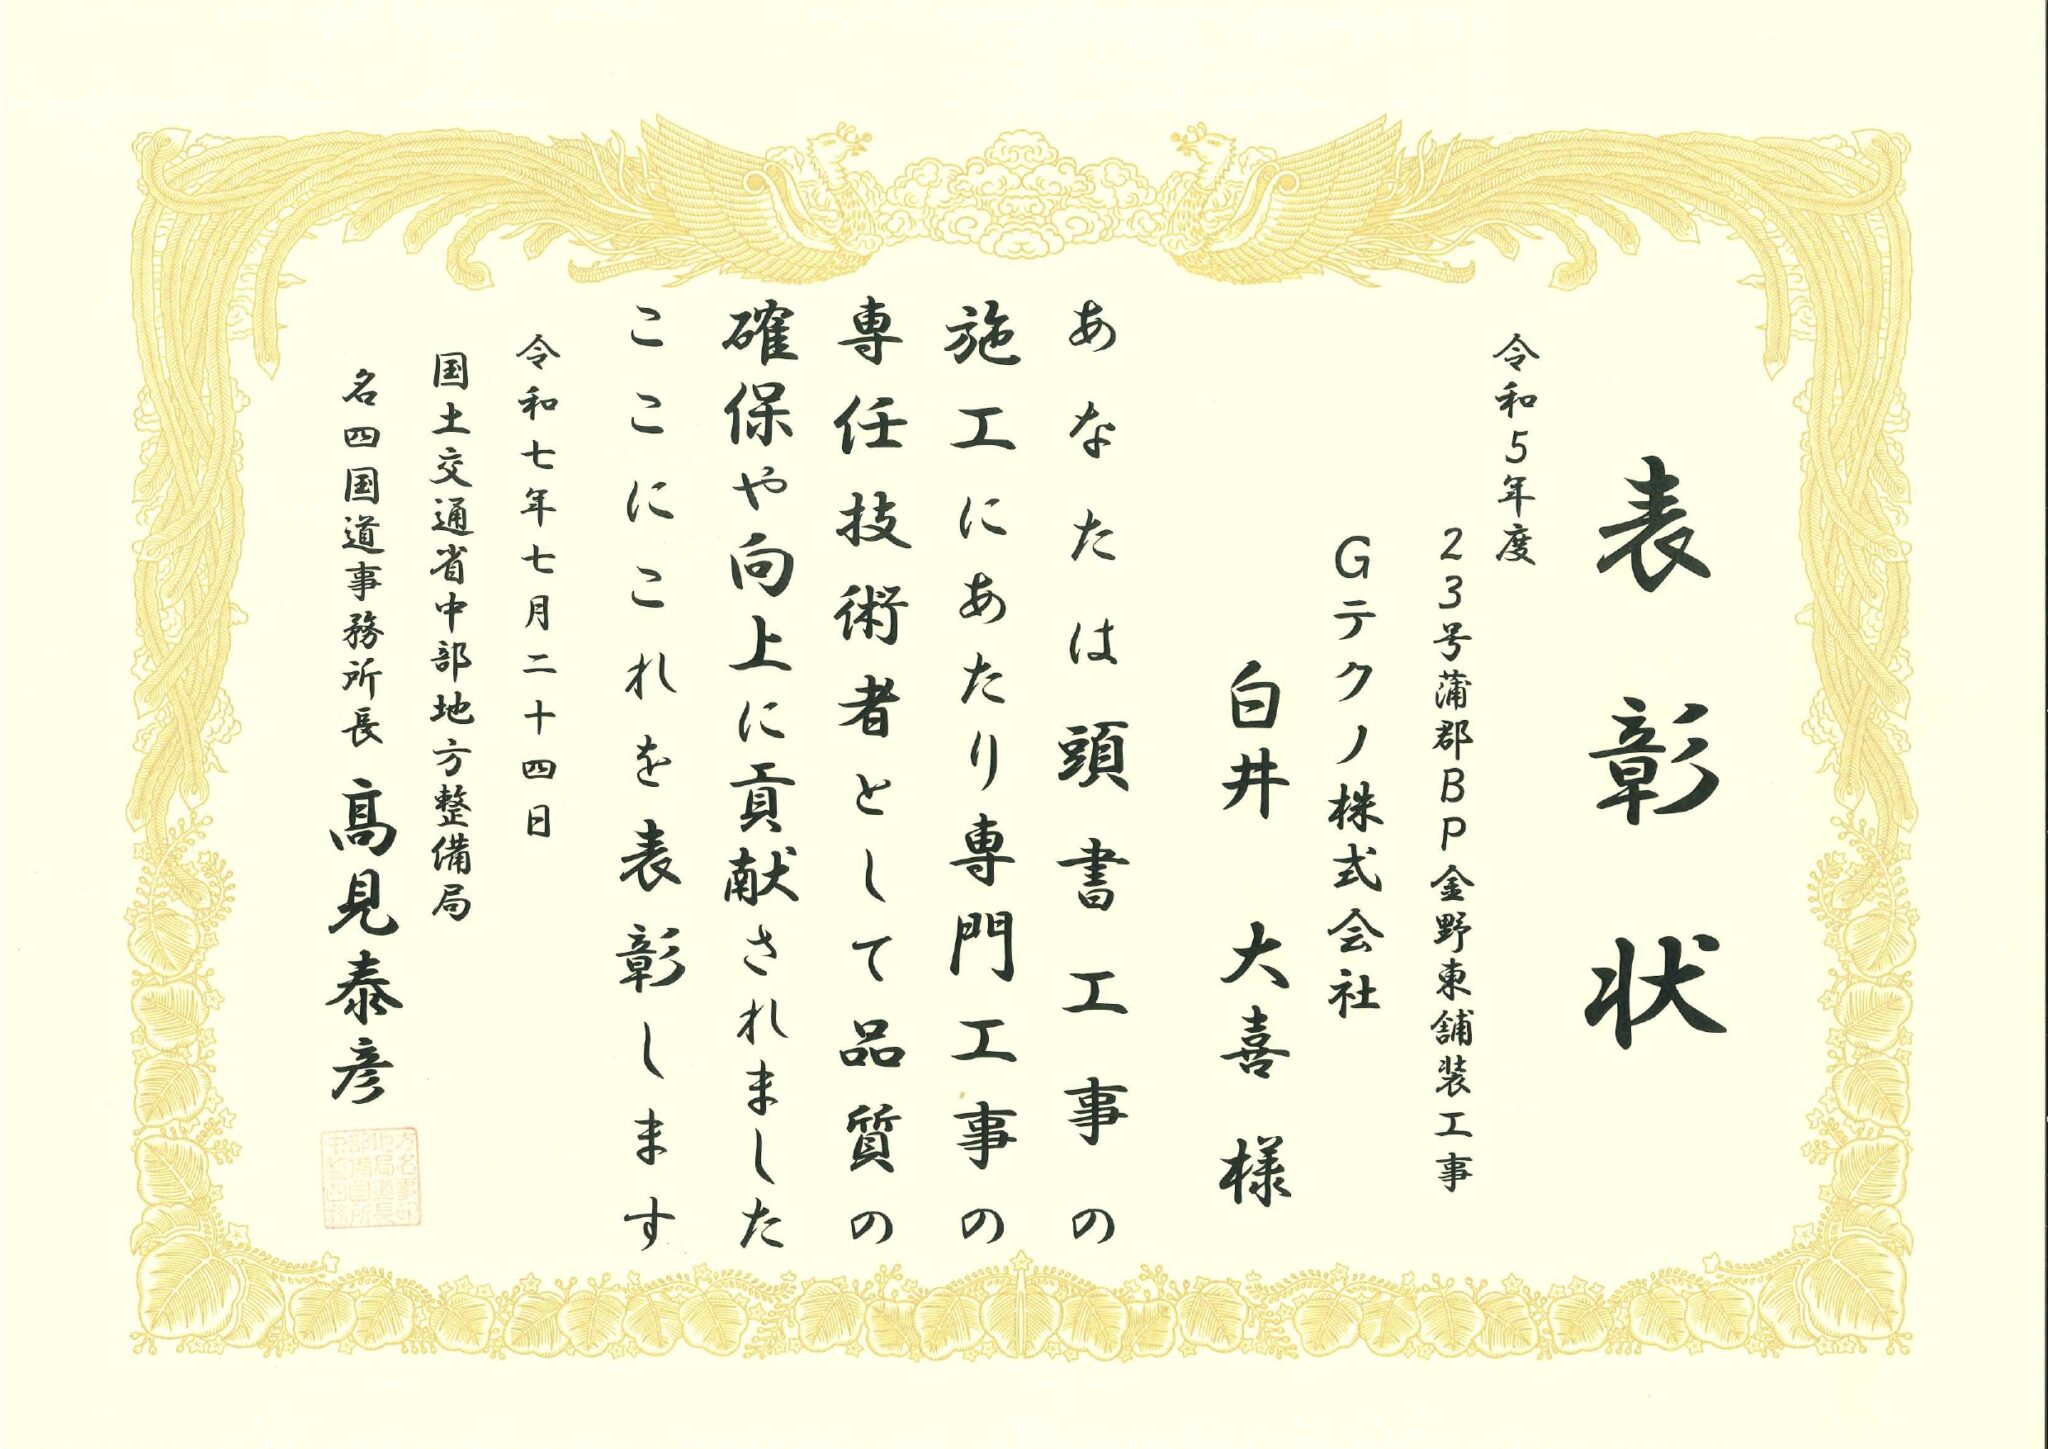 表彰状
令和5年度
23号蒲郡BP金野東舗装工事
Gテクノ株式会社
白井 大喜 様
あなたは頭書工事の
施工にあたり専門工事の
専任技術者として品質の
確保や向上に貢献されました
ここにこれを表彰します
令和七年七月二十四日
国土交通省中部地方整備局
名四国道事務所長 髙見泰彦